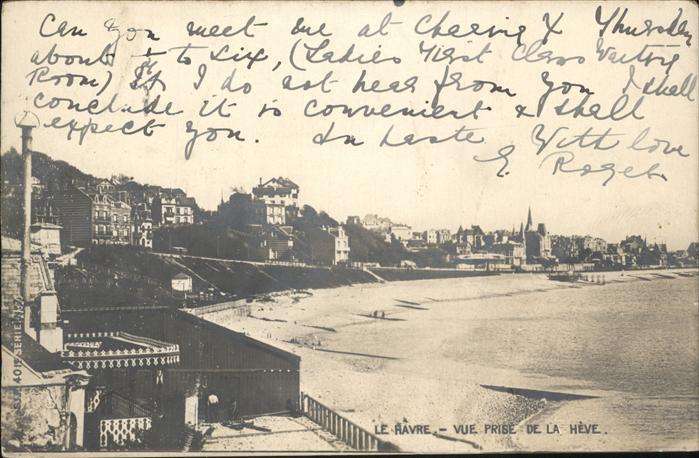 Can you meet me at Charing X Thursday
about ¼ to six, (Ladies First Class Waiting
Room) If I do not hear from you I shall
conclude it is convenient & shall
expect you. In haste With love
E. Roget
LE HÂVRE. - VUE PRISE DE LA HÈVE.